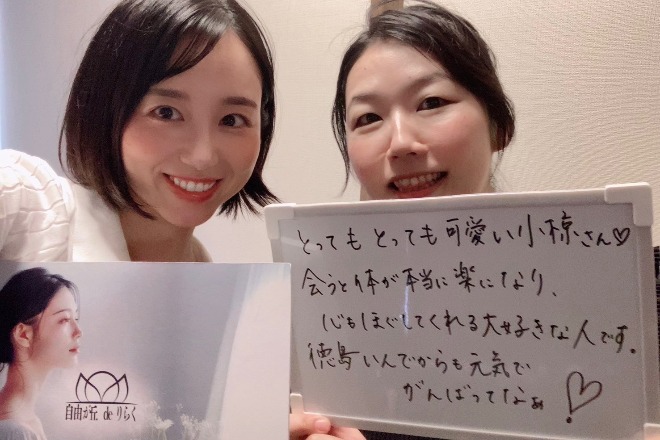 とってもとっても可愛い小椋さん♡
会うと体が本当に楽になり、
心もほぐしてくれる大好きな人です。
徳島いんでからも元気で
がんばってなぁ!♡
自由が丘 de りらく